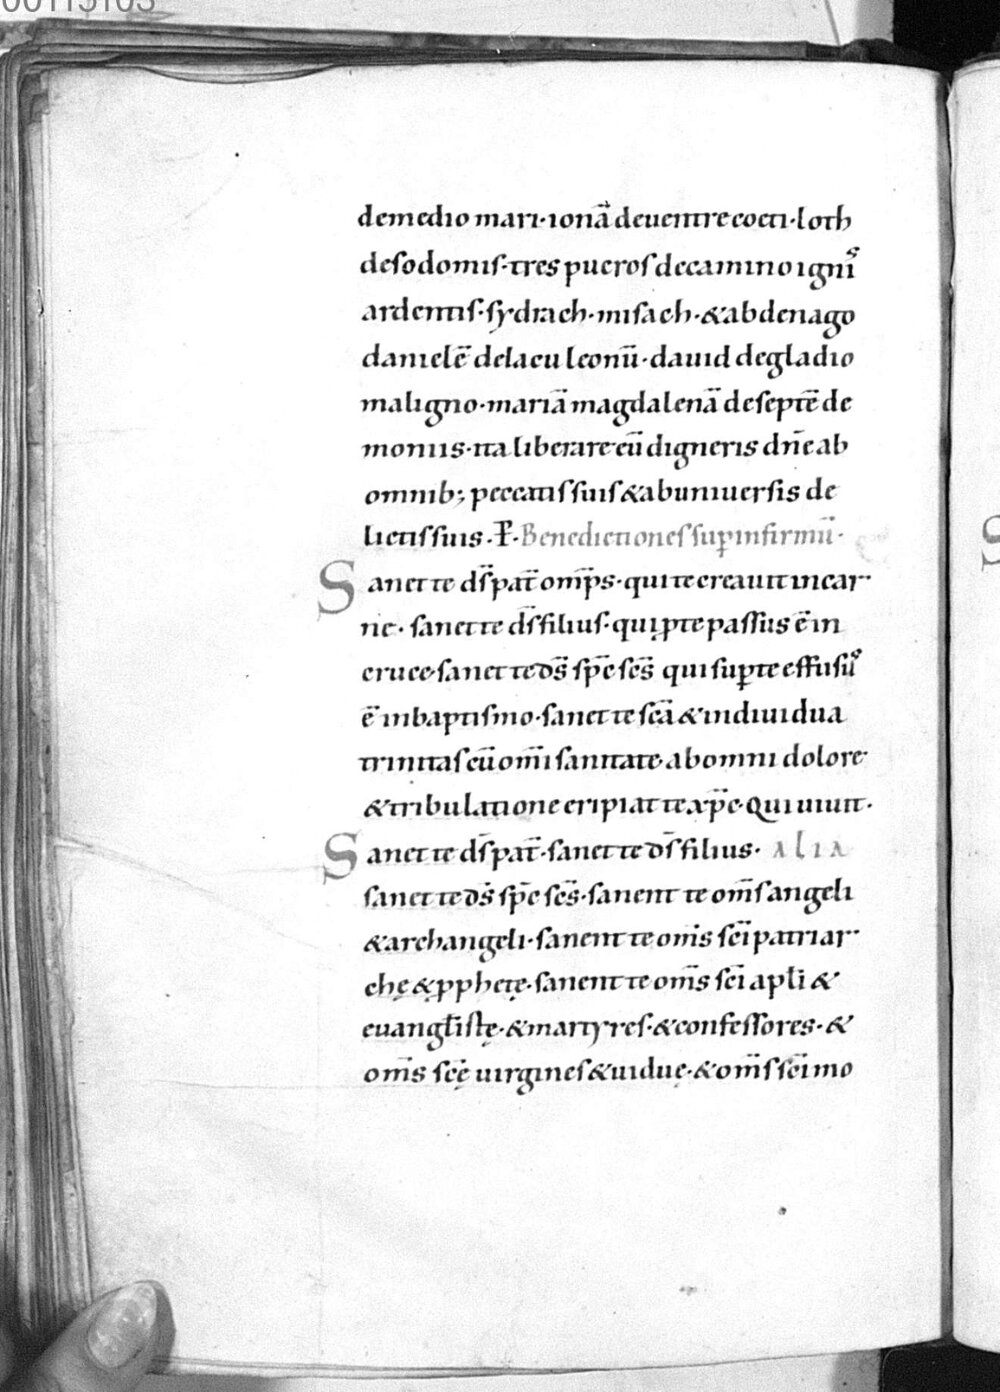 00115103
de medio mari· ionā de uentre coeti· loth
de sodomis· tres pueros de camino igniˢ
ardentis· sydrach· misach· & abdenago
danielē de lacu leonū· dauid de gladio
maligno· mariā magdalenā de septē de
moniis· ita liberare eū digneris dn̄e ab
omnib; peccatis suis & ab uniuersis de
lictis suis· P̄· Benedictiones sup̱ infirmū·
Sanet te ds̄ pat̄ omp̄s· qui te creauit in car
ne· sanet te ds̄ filius· qui p̱ te passus ē in
cruce· sanet te ds̄ sp̄c scs̄ qui sup̱ te effusuˢ
ē in baptismo· sanet te scā & indiuidua
trinitas cū om̄i sanitate· ab omni dolore·
& tribulatione eripiat te xp̄c· Qui uiuit·
Sanet te ds̄ pat̄· sanet te ds̄ filius· ALIA
sanet te ds̄ sp̄c scs̄· sanent te om̄s angeli
& archangeli· sanent te om̄s scī patriar
chę & p̱phetę· sanent te om̄s scī apl̄i &
euangl̄istę· & martyres· & confessores· &
om̄s scę̄ uirgines & uiduę· & om̄s scī mo